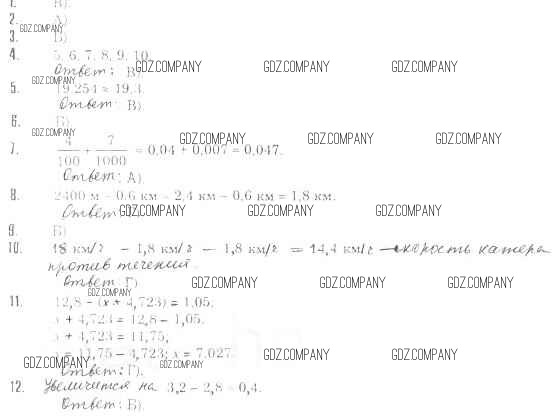 1. В).
2. А)
GDZ.COMPANY
3. В)
4. 5, 6, 7, 8, 9, 10.
Ответ: В) GDZ.COMPANY GDZ.COMPANY GDZ.COMPANY
GDZ.COMPANY
5. 19,254 ≈ 19,3.
Ответ: В)
6. В)
GDZ.COMPANY
7. 4/100 + 7/1000 = 0,04 + 0,007 = 0,047.
GDZ.COMPANY GDZ.COMPANY GDZ.COMPANY
Ответ: А)
8. 2400 м – 0,6 км = 2,4 км – 0,6 км = 1,8 км.
Ответ: GDZ.COMPANY GDZ.COMPANY GDZ.COMPANY
9. Б)
10. 18 км/г – 1,8 км/г – 1,8 км/г = 14,4 км/г – скорость катера
против течений.
Ответ: Г) GDZ.COMPANY GDZ.COMPANY GDZ.COMPANY
GDZ.COMPANY
11. 12,8 – (x + 4,723) = 1,05;
x + 4,723 = 12,8 – 1,05;
x + 4,723 = 11,75;
x = 11,75 – 4,723; x = 7,027.
GDZ.COMPANY GDZ.COMPANY GDZ.COMPANY GDZ.COMPANY
Ответ: Г).
12. Увеличится на 3,2 – 2,8 = 0,4.
Ответ: Б).